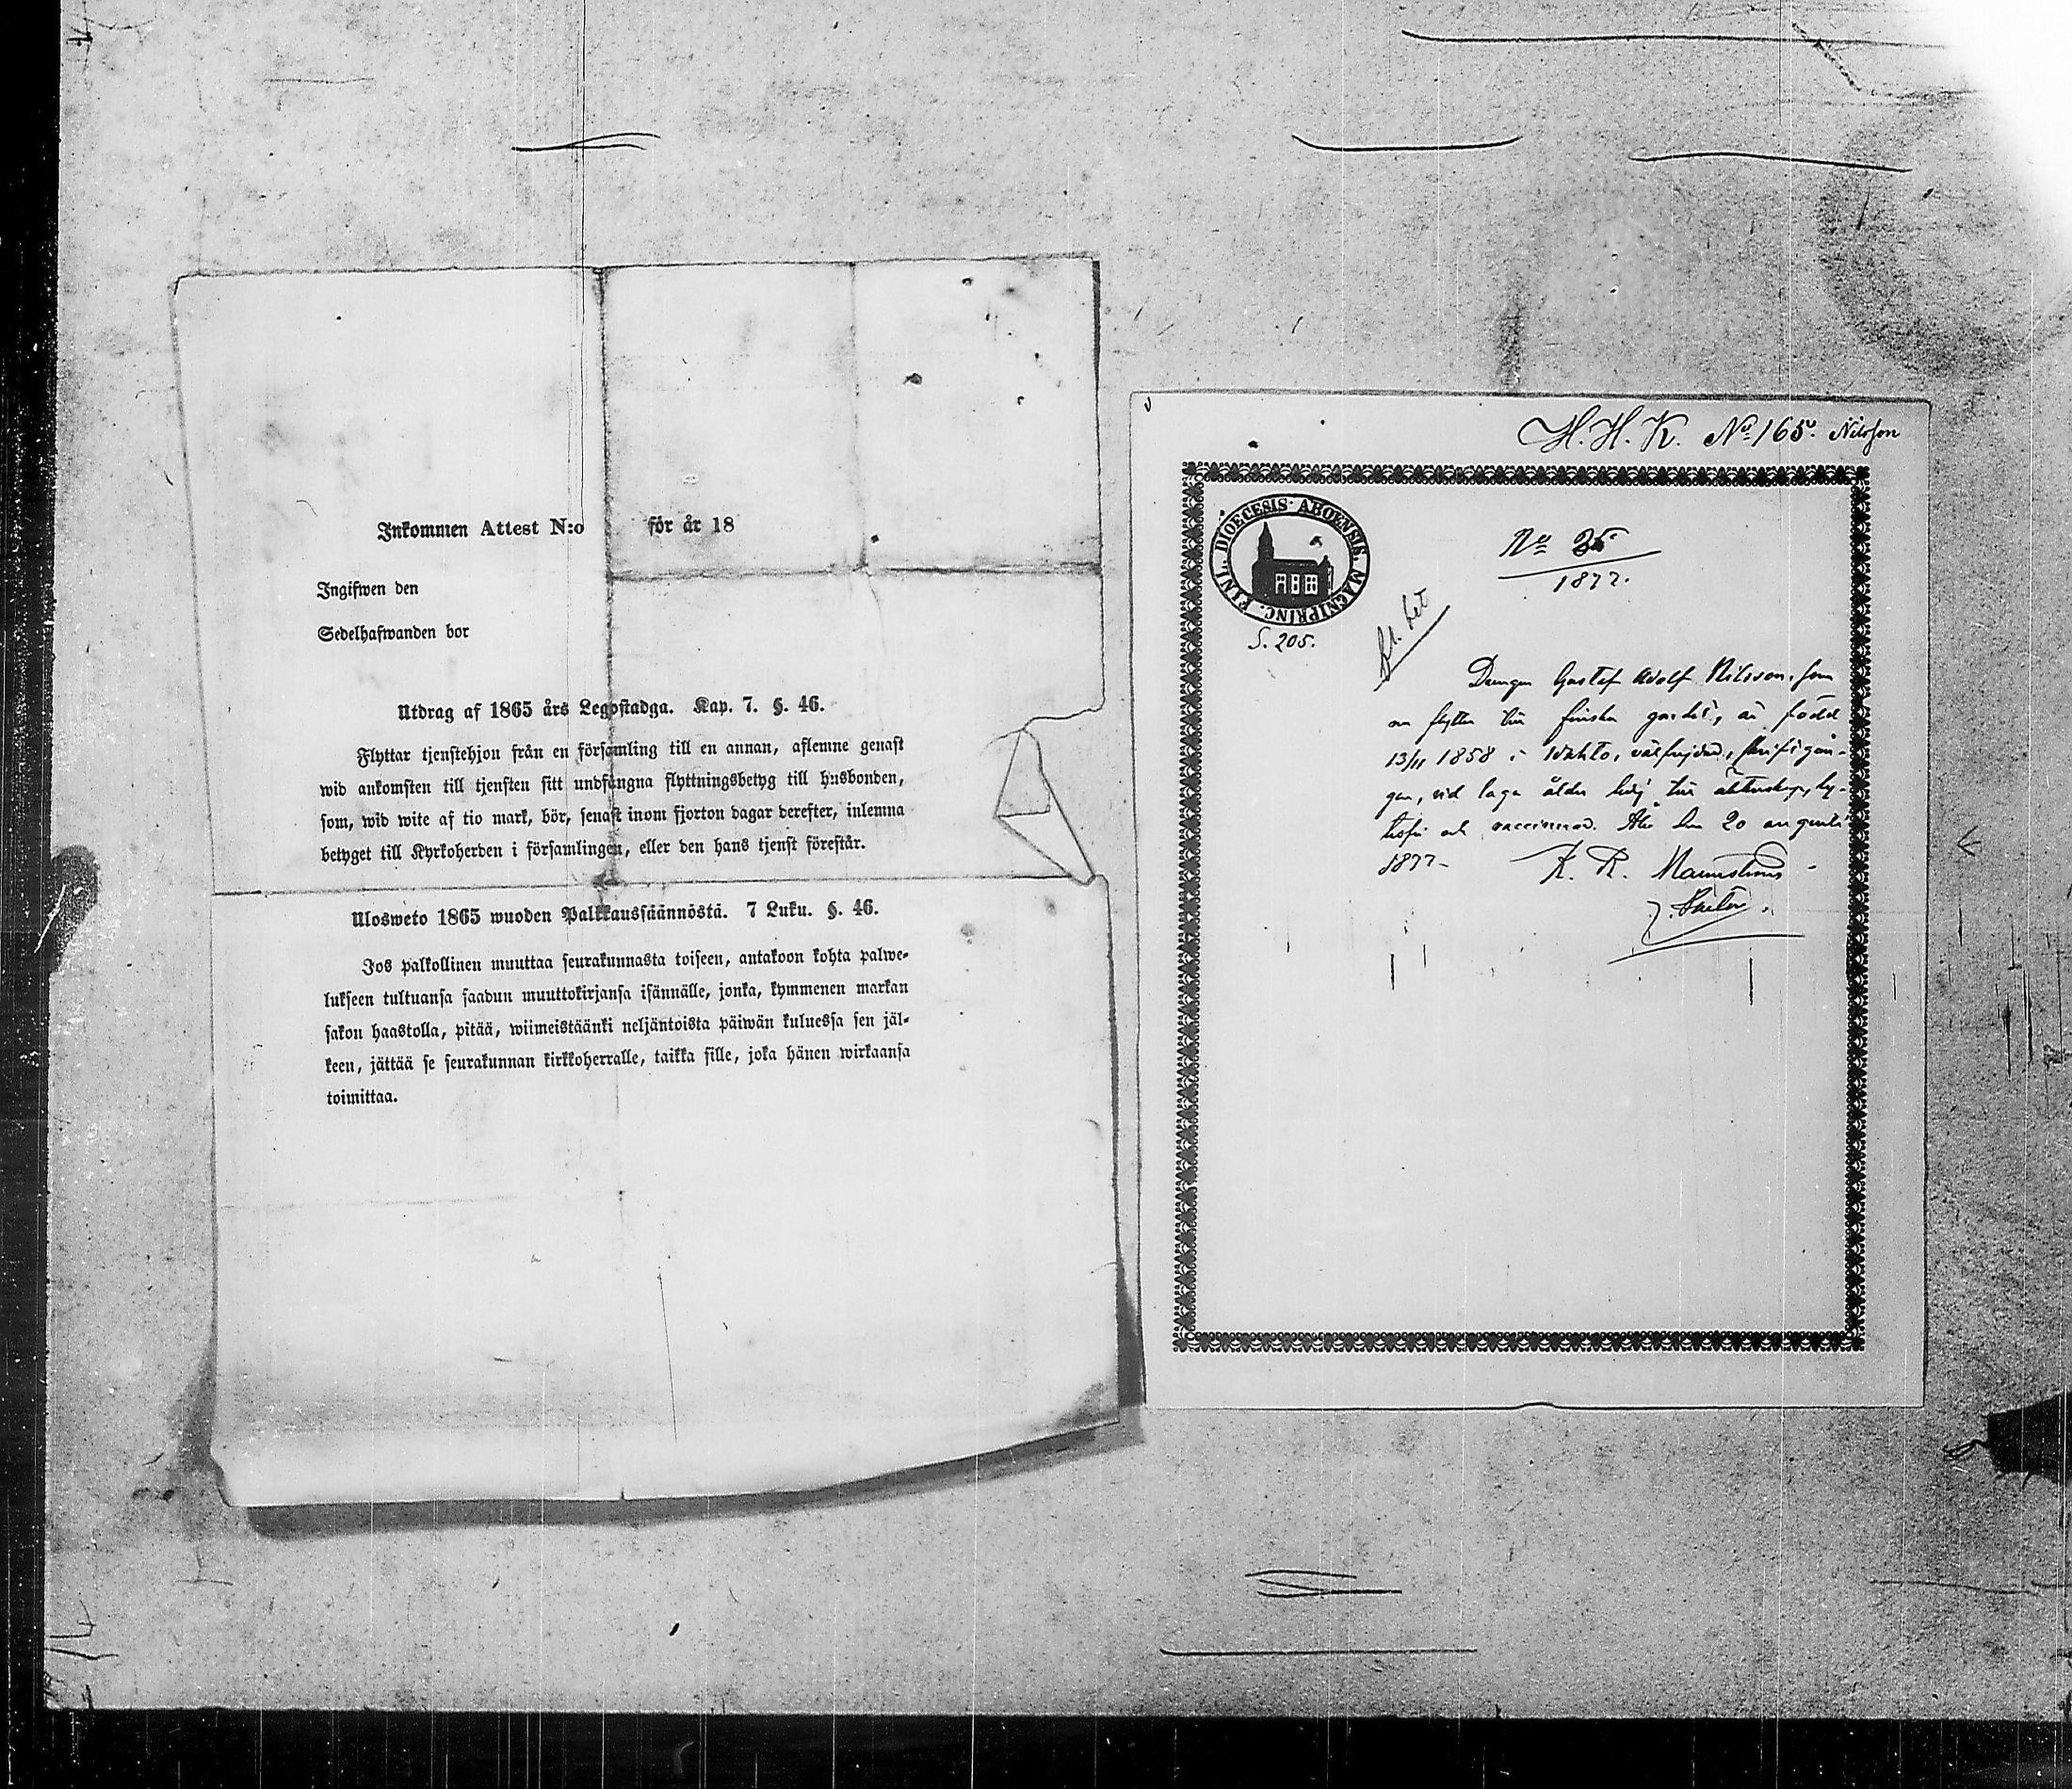 Inkommen Attest N:o för år 18
Ingifwen den
Sedelhafwanden bor
Utdrag af 1865 års Legostadga. Kap. 7. §. 46.
Flyttar tjenstehjon från en församling till en annan, aflemne genast
wid ankomsten till tjensten sitt undfångna flyttningsbetyg till husbonden,
som, wid wite af tio mark, bör, senast inom fjorton dagar derefter, inlemna
betyget till Kyrkoherden i församlingen, eller den hans tjenst förestår.
Ulosweto 1865 wuoden Palkkaussäännöstä. 7 Luku. §. 46.
Jos palkollinen muuttaa seurakunnasta toiseen, antakoon kohta palwe-
lukseen tultuansa saadun muuttokirjansa isännälle, jonka, kymmenen markan
sakon haastolla, pitää, wiimeistäänki neljäntoista päiwän kuluessa sen jäl-
keen, jättää se seurakunnan kirkkoherralle, taikka sille, joka hänen wirkaansa
toimittaa.
H. H. K. No 165. Nilsson
FINL. DIOECESIS ABOENSIS. MAGNI PRINC.
S. 205.
No 25
1877.
Drengen Gustaf Adolf Nilsson, som
flyttar till finska gardet, är född
13/11 1858 i välfrejdad, skriftgån-
gen, vid laga ålder ledig till äktenskap, ly-
tesfri och vaccinerad. Åbo den 20 augusti
1877 K. R.